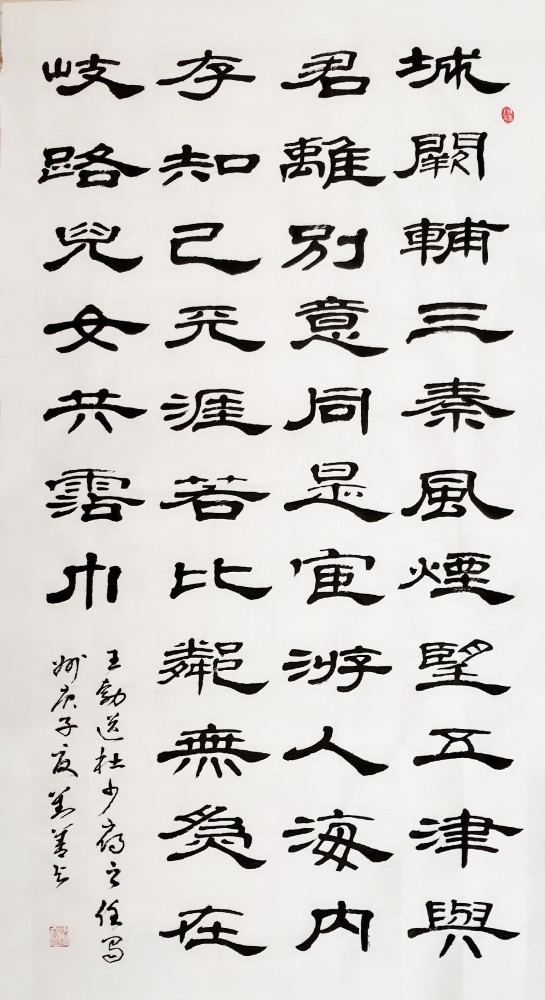 城闕輔三秦風煙望五津與
君離別意同是宦游人海内
存知己天涯若比鄰無為在
岐路兒女共霑巾
王勃送杜少府之任蜀
州庚子夏